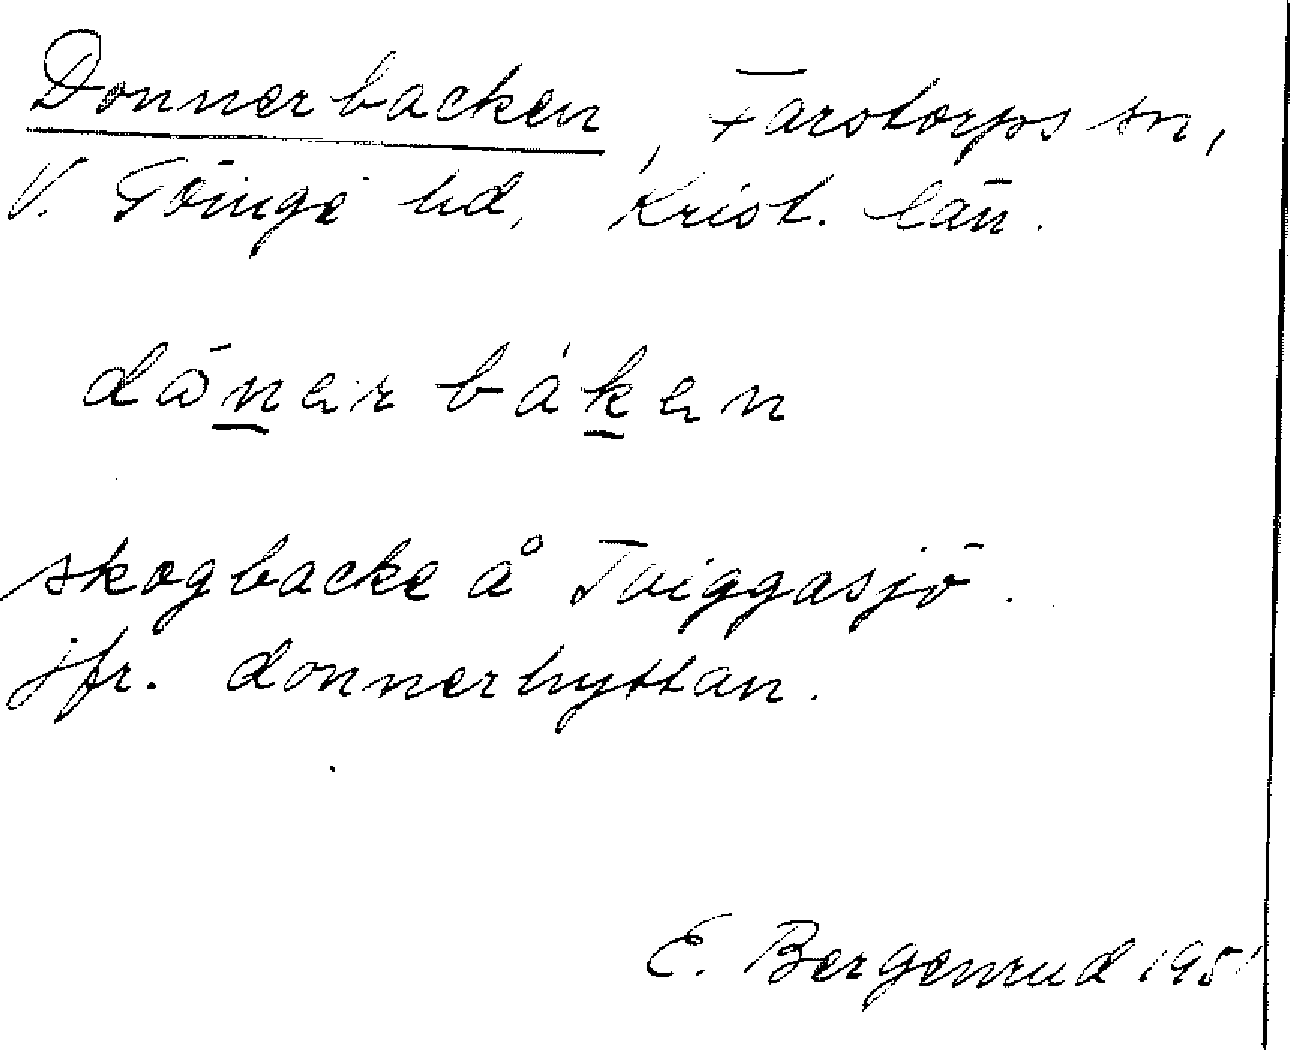 Donnerbacken, Farstorps sn,
V. Göinge hd, Krist. län.
dånerbáken
skogbacke å Tviggasjö.
jfr. donnerhyttan.
E. Bergenrud 1951